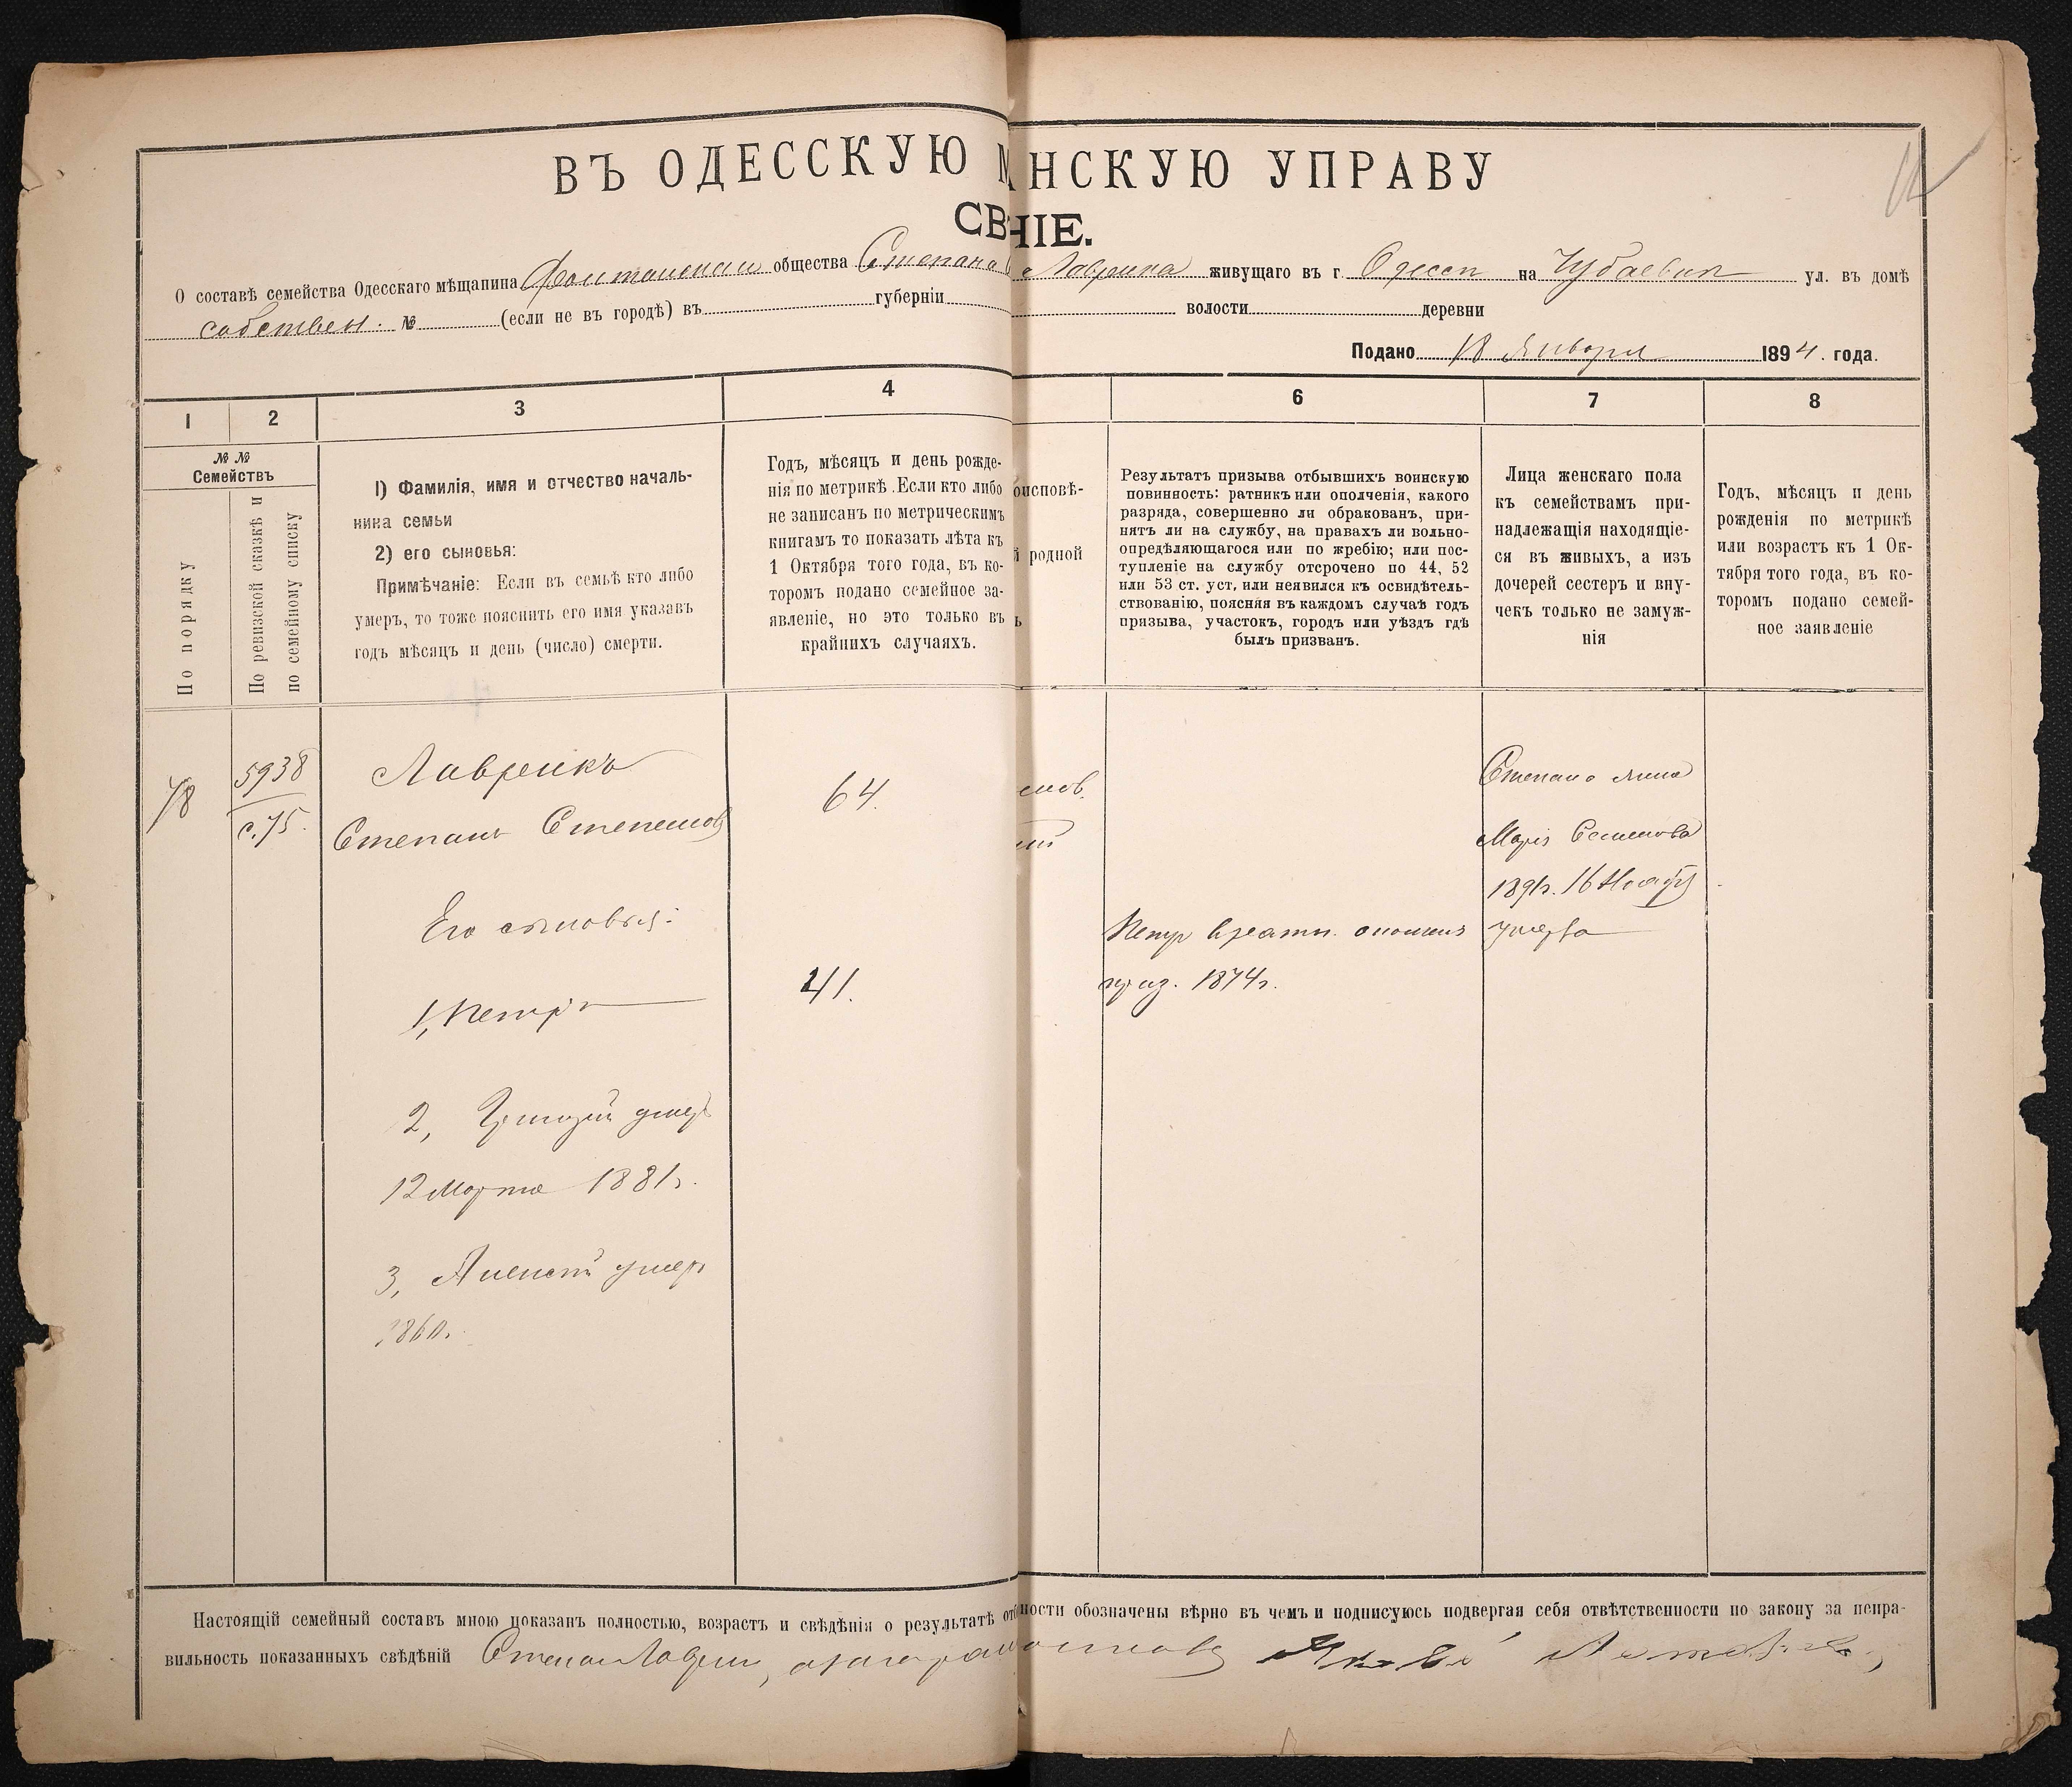 ВЪ ОДЕССКУЮ М НСКУЮ УПРАВУ
СВ НІЕ.
О составѣ семейства Одесскаго мѣщанина Фонтанскаго общества Степана Лаврика живущаго въ г. Одессѣ на Чубаевкѣ ул. въ домѣ
собствен. № (если не въ городѣ) въ губерніи волости деревни
Подано 18 Января 1894. года.
1 2 3 4 6 7 8
№ №
Семействъ
По порядку
По ревизской сказкѣ и
по семейному списку
1) Фамилія, имя и отчество началь-
ника семьи
2) его сыновья:
Примѣчаніе: Если въ семьѣ кто либо
умеръ, то тоже пояснить его имя указавъ
годъ мѣсяцъ и день (число) смерти.
Годъ, мѣсяцъ и день рожде-
нія по метрикѣ. Если кто либо
не записанъ по метрическимъ
книгамъ то показать лѣта къ
1 Октября того года, въ ко-
торомъ подано семейное за-
явленіе, но это только въ
крайнихъ случаяхъ.
оисповѣ-
й родной
ь
Результатъ призыва отбывшихъ воинскую
повинность: ратникъ или ополченія, какого
разряда, совершенно ли обракованъ, при-
нятъ ли на службу, на правахъ ли вольно-
опредѣляющагося или по жребію; или пос-
тупленіе на службу отсрочено по 44, 52
или 53 ст. уст, или неявился къ освидѣтель-
ствованію, поясняя въ каждомъ случаѣ годъ
призыва, участокъ, городъ или уѣздъ гдѣ
былъ призванъ.
Лица женскаго пола
къ семействамъ при-
надлежащія находящіе-
ся въ живыхъ, а изъ
дочерей сестеръ и вну-
чекъ только не замуж-
нія
Годъ, мѣсяцъ и день
рожденія по метрикѣ
или возрастъ къ 1 Ок-
тября того года, въ ко-
торомъ подано семей-
ное заявленіе
78
5938
с. 75.
Лаврикъ
Степанъ Степановъ
Его сыновья:
1, Петръ
2, Григорій умеръ
12 Марта 1881 г.
3, Алексѣй умеръ
1860г.
64.
41.
Петръ ратн. ополчен
приз. 1874г.
Степана жена
Марія Семенова
189 г. 16 Ноября
умерла
Настоящій семейный составъ мною показанъ полностью, возрастъ и свѣдѣнія о результатѣ от ности обозначены вѣрно въ чемъ и подписуюсь подвергая себя отвѣтственности по закону за непра-
вильность показанныхъ свѣдѣній Степан Лаврик,